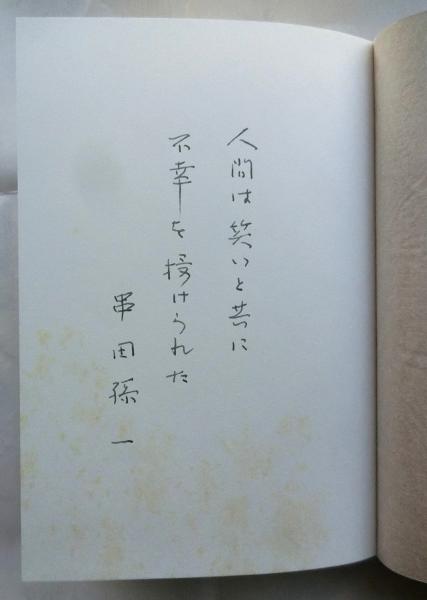 人間は笑いと共に
不幸を授けられた
串田孫一